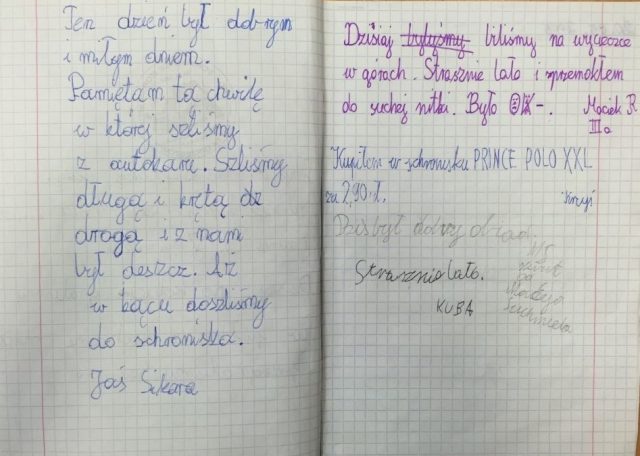 Ten dzień był dobrym
i miłym dniem.
Pamiętam tą chwilę
w której szliśmy
z autokaru. Szliśmy
długą i krętą dż
drogą i z nami
był deszcz. Aż
w końcu doszliśmy
do schroniska.
Jaś Sikora
Dzisiaj byliśmy biliśmy na wycieczce
w górach. Strasznie lało i przemokłem
do suchej nitki. Było -.
Maciek R.
IIIa
Kupiłem w schronisku PRINCE POLO XXL
za 2,90 zł.
Krzyś
Dziś był dobry obiad
Strasznie lało.
KUBA